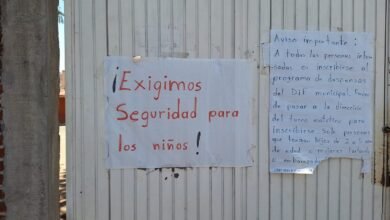 ¡Exigimos
Seguridad para
los niños!
Aviso importante:
A todas las personas
en inscribirse al
programa de despensas
del Dif municipal.
de pasar a la dirección
del turno
inscribirse solo personas
que tengan hijos de 2 a 5
de edad o